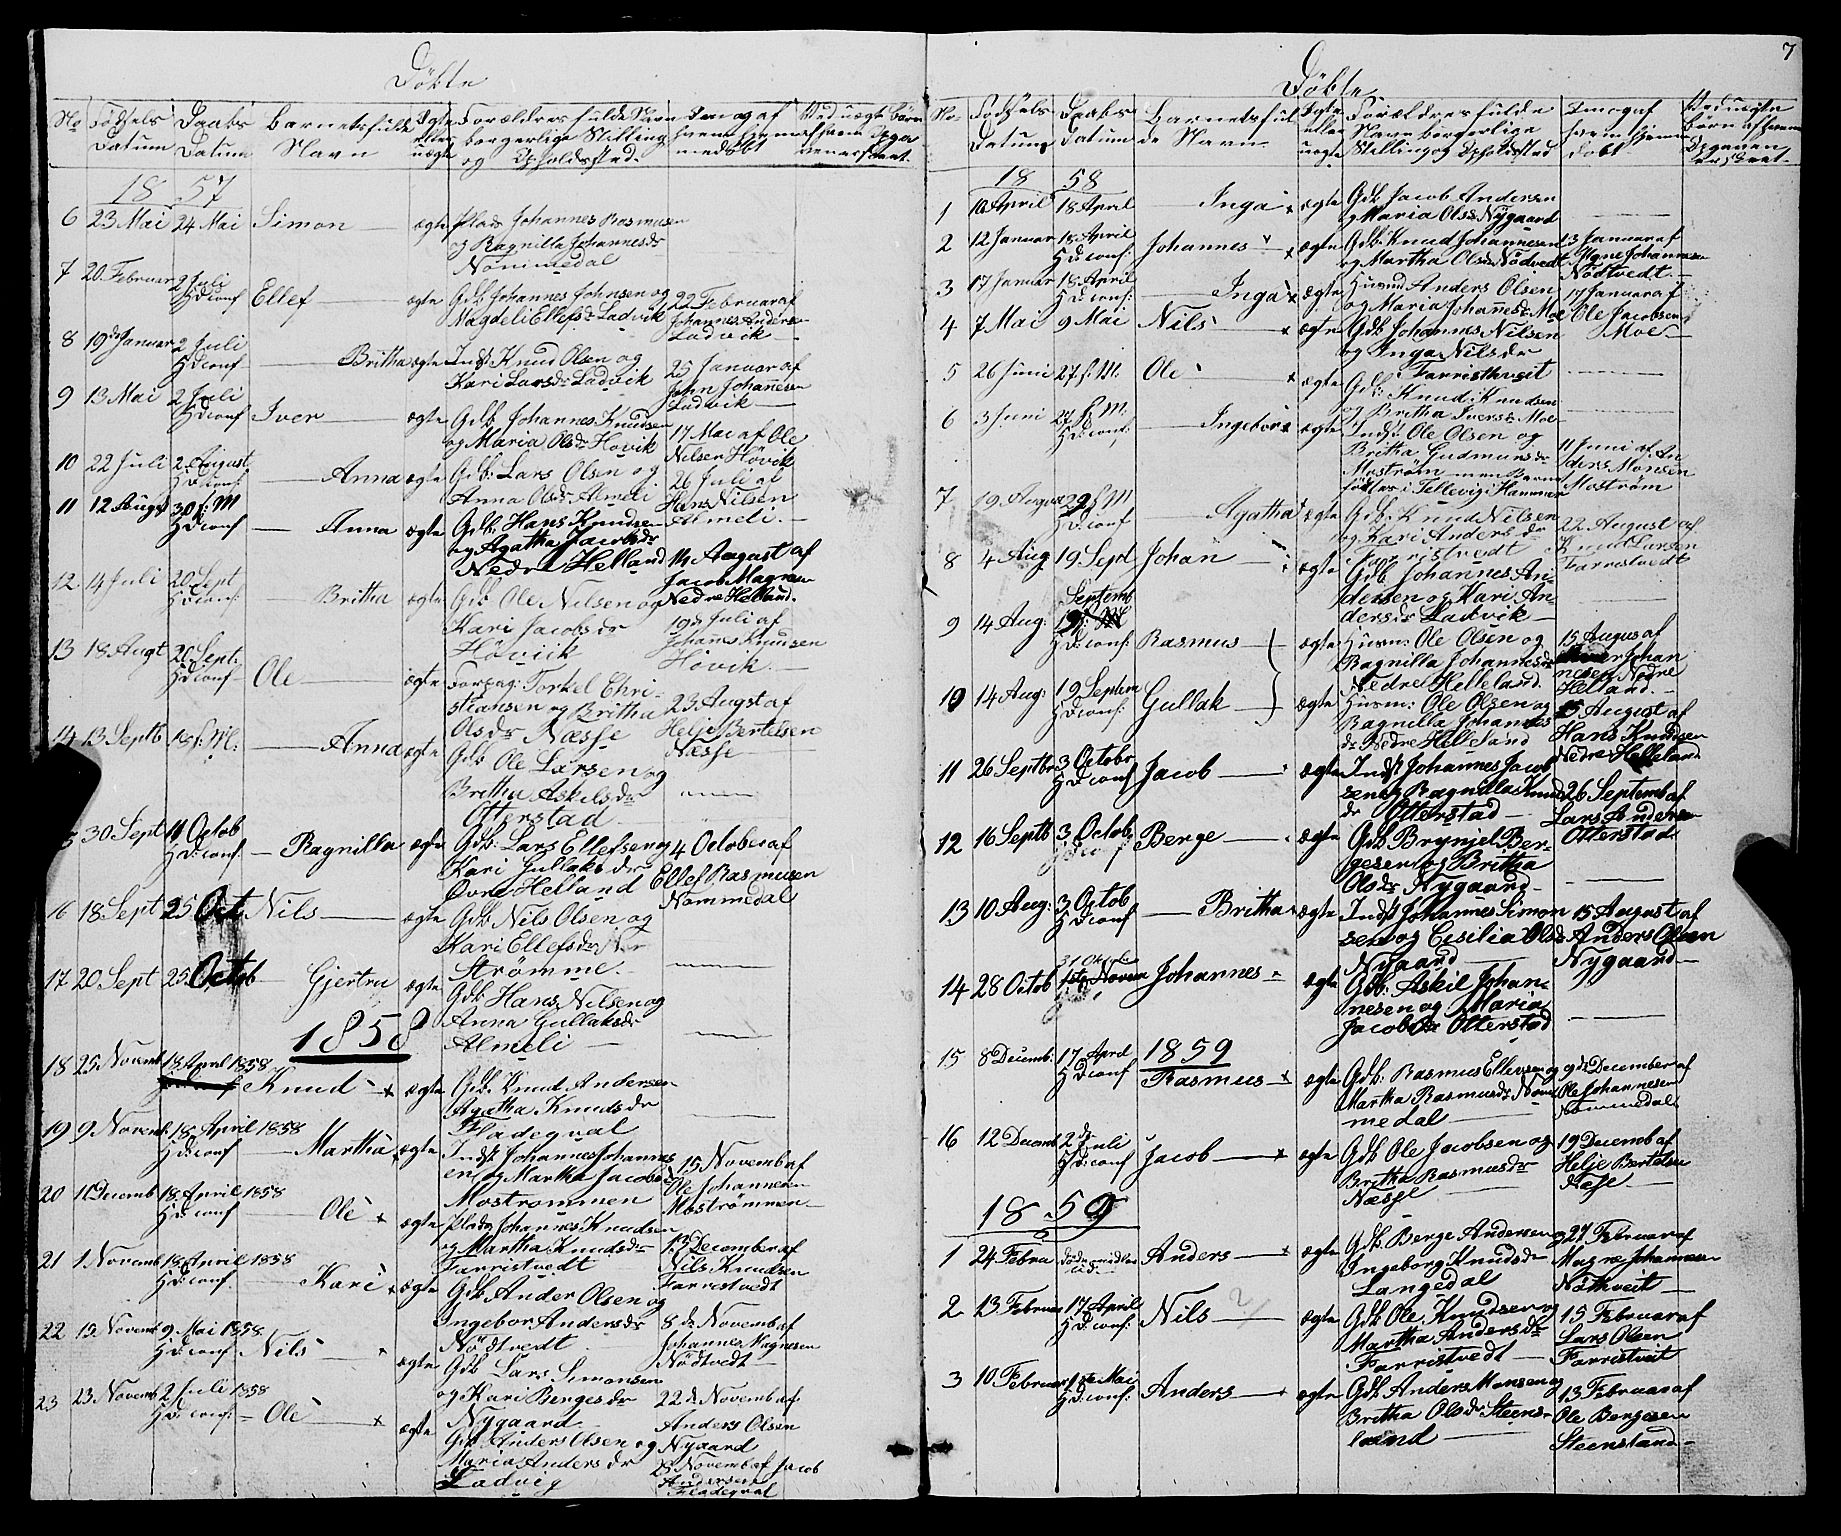 Döbte
No
Födsels Datum
Daabs Datum
Barnets fulde Navn
Ægte eller uægte
Forældres fulde Navn borgerlige Stilling og Opholdssted.
Naar og af hvem hjemmedöbt
Ved uægte Börn af hvem Opgavenerskeet.
1857
6 23 Mai 24 Mai Simon ægte Plads Johannes Rasmusen
og Ragnilla Johannesdr
Nommedal
7 20 Februar 2 Juli
H D: conf Ellef ægte Gdb: Johannes Johnsen og
Magdeli Ellefsdr Ladvik
22 Februar af
Johannes Andersen
Ladvik
8 19de Januar 2 Juli
H D: conf Britha ægte Indst Knud Olsen og
Kari Larsdr Ladvik
25 Januar af
John Johannesen
Ladvik
9 13 Mai 2 Juli
H D: conf Iver ægte Gdb. Johannes Knudsen
og Maria Olsdr Hövik
17 Mai af Ole
Nilsen Hövik
10 22 Juli 2 August
H D: conf: Anna ægte Gdb: Lars Olsen og
Anna Olsdr Almeli
26 Juli af
Hans Nilsen
Almeli.
11 12 Augst 30 f: M
H D: conf Anna ægte Gdb. Hans Knudsen
og Agatha Jacobsdr
Nedre Helland
14 August af
Jacob Magnesen
Nedre Helland.
12 14 Juli 20 Sept
H D: conf: Britha ægte Gdb Ole Nilsen og
Kari Jacobsdr
Hövik
19de Juli af
Johans Knudsen
Hövik.
13 18 Augt 20 Sept.
H D: conf Ole ægte Forpag: Torkel Chri-
stiansen og Britha
Olsdr Næsse
23 Augst af
Helje Bertelsen
Næsse
14 13 Septb 18 f: M: Anna ægte Gdb Ole Larsen og
Britha Askelsdr
Otterstad
30 Sept 11 Octob
H D: conf: Ragnilla ægte Gdb: Lars Ellefsen og
Kari Gullaksdr
Övre Helland
4 October af
Ellef Rasmusen
Nommedal
16 18 Sept 25 Oct Nils ægte Gdb: Nils Olsen og
Kari Ellefsdr
Strömme.
17 20 Sept 25 Octob Gjertru ægte Gdb. Hans Nilsen og
Anna Gullaksdr
Almeli
1858
18 25 Novemb 18 April 1858
Knud ægte Gdb. Knud Andersen
Agatha Knudsdr
Fladeqval
19 9 Novemb: 18 April 1858
H D: conf Martha ægte Indst Johannes Johannes
en og Martha Jacobsdr
Moströmmen
15 Novemb af
Ole Johannesen
Moströmmen
20 Decemb 18 April 1858
H D: conf Ole ægte Pladsg Johannes Knudsen
og Martha Knudsdr
Farristvedt
13 December af
Nils Knudsen
Farristvedt
21 1. Novemb 18 April 1858
H D: conf. Kari ægte Gdb Ander Olsen og
Ingebor Andersdr
Nödtvedt
8de Novemb af
Johannes Magnesen
Nödtvedt
22 15 Novemb 9 Mai 1858.
H D: conf Nils ægte Gdb Lars Simonsen
og Kari Bergesdr
Nygaard
22de Novemb af
Anders Olsen
Nygaard
23 23 Novemb 2 Juli 1858
H D: conf: Ole ægte Gdb Anders Olsen og
Maria Andersdr
Ladvig
28 Novemb af Jacob
Andersen
Fladeqval
7
Döbte
No
Födsels Datum
Daabs Datum
Barnets fulde Navn
Ægte eller uægte
Forældres fulde Navn borgerlige Stilling og Opholdsted
Naar og af hvem hjemdöbt
Ved uægte Börn af hvem Opgaven er skeet.
1858
1 10 April 18 April Inga ægte Gdb Jacob Andersen
og Maria Olsdr Nygaard
2 12 Januar 18 April
H D: conf: Johannes ægte Gdb. Knud Johannesen
og Martha Olsdr Nödvedt
13 Januar af
Magne Johannesen
Nödtvedt
3 17 Januar 18 April
H D: conf: Inga ægte Husmd Anders Olsen
og Maria Johannesdr Moe
17 Januar af
Ole Jacobsen
Moe
4 7 Mai 9 Mai Nils ægte Gdb Johannes Nilsen
og Inga Nilsdr
Farristhveit
5 26 Juni 27 f. M. Ole ægte Gdb: Knud Knudsen
og Britha Iversdr Moe
6 3 Juni 27 f. M.
H D: conf: Ingebor ægte Indst Ole Olsen og
Britha Gudmunsdr
Moström men Barnet
födt i Tellevig i Hammer
11 Juni af An
ders Monsen
Moström
7 19 August 29 f M
H D: conf Agatha ægte Gdb: Knud Nilsen
og Kari Andersdr
Farristvedt
22 August af
Knud Larsen
Farristvedt
8 4 Aug 19 Sept Johan ægte Gdb. Johannes An-
dersen og Kari An-
dersdr Ladvik
9 14 Aug: Septemb
H D: conf: Rasmus ægte Husm: Ole Olsen og
Ragnilla Johannesdr
Nedre Helleland.
15 August af
Johan
nesen Nedre
Helland.
10 14 Aug: 19 Septem
H D: conf: Gullak ægte Husm: Ole Olsen og
Ragnilla Johannes
dr Nedre Helleland
15 August af
Hans Knudsen
Nedre Helleland
11 26 Septbr 3 Octobr
H D: conf Jacob ægte Indst Johannes Jacob
sen og Ragnilla Knuds
dr Otterstad
26 Septemb af
Lars Andersen
Otterstad
12 16 Septb 3 Octob Berge ægte Gdb Brynjel Ber-
gesen og Britha
Olsdr Nygaard
13 10 Aug: 3 Octob
H D: conf Britha ægte Indst Johannes Simon
sen og Cisilia Olsdr
Nygaard
15 August af
Anders Olsen
Nygaard
14 28 Octob 31 October
1ste Novem Johannes ægte Gdb. Askil Johan-
nesen og Maria
Jacobsdr Otterstad
15 8 Decemb: 17 April
H D: conf
1859
Rasmus ægte Gdb: Rasmus Ellevsen og
Martha Rasmusdr Nom
medal
9de December af
Ole Johannesen
Nommedal
16 12 Decemb 2de Juli
H D: conf Jacob ægte Gdb Ole Jacobsen og
Britha Rasmusdr
Næsse
19 Decemb af
Helje Bertelsen
Næsse
1859
1 24 Februa Anders ægte Gdb. Berge Andersen og
Ingeborg Knudsdr
Langedal
27 Februar af
Magne Johannesen
Nöthveit
2 13 Februar 17 April
H D: conf: Nils ægte Gdb. Ole Knudsen og
Martha Andersdr
Farristvedt
15 Februar af
Lars Olsen
Farristveit
3 10 Februar 1ste Mai
H D: conf: Anders ægte Gdb. Anders Monsen og
Britha Olsdr Steens-
land
13 Februar af
Ole Bergesen
Steensland